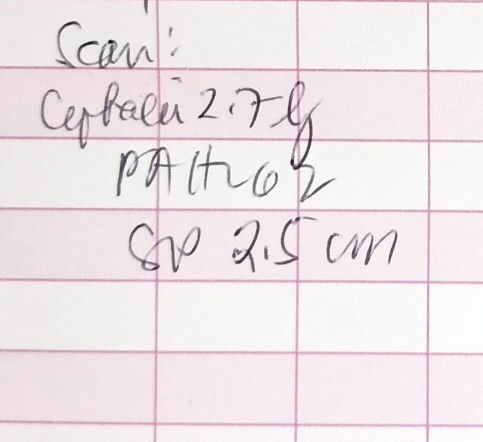 Scan:
Cephalic 2.7 kg
PAH20 2
SP 2.5 cm